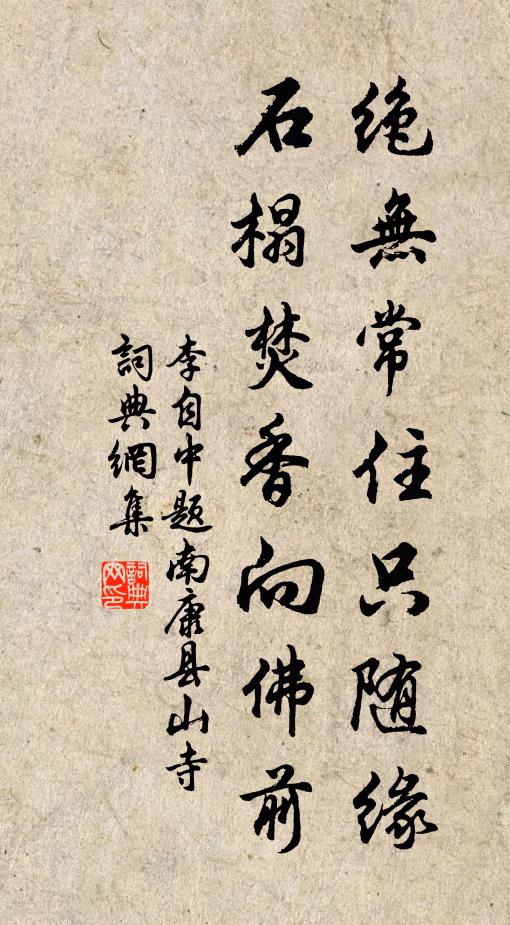 绝無常住只随缘
石榻焚香向佛前
李自中题南康县山寺
詞典網集
詞典网印